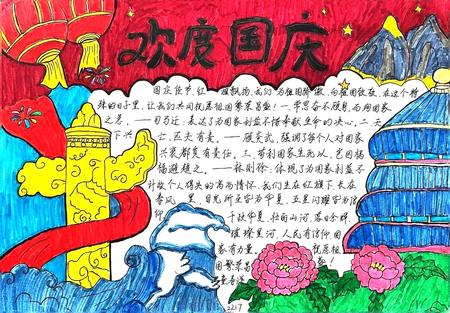 欢度国庆
国庆佳节,红旗飘扬,我们为祖国骄傲,向祖国致敬,在这个特
殊的日子里,让我们共同祝愿祖国繁荣昌盛!一、常思奋不顾身,而殉国家
之急。——司马迁,表达了为国家利益不惜奉献生命的决心。二、天
下兴亡,匹夫有责。——顾炎武,强调了每个人对国家
兴衰都负有责任。三、苟利国家生死以,岂因祸
福避趋之。——林则徐,体现了为国家利益不
计较个人得失的高尚情怀。我们生在红旗下,长在
春风里,目光所至皆为华夏,五星闪耀皆为信
仰。千秋华夏,壮丽山河,落日余晖
璀璨星河,人民有信仰,国
家有力量,祝愿祖
国繁荣昌
2217